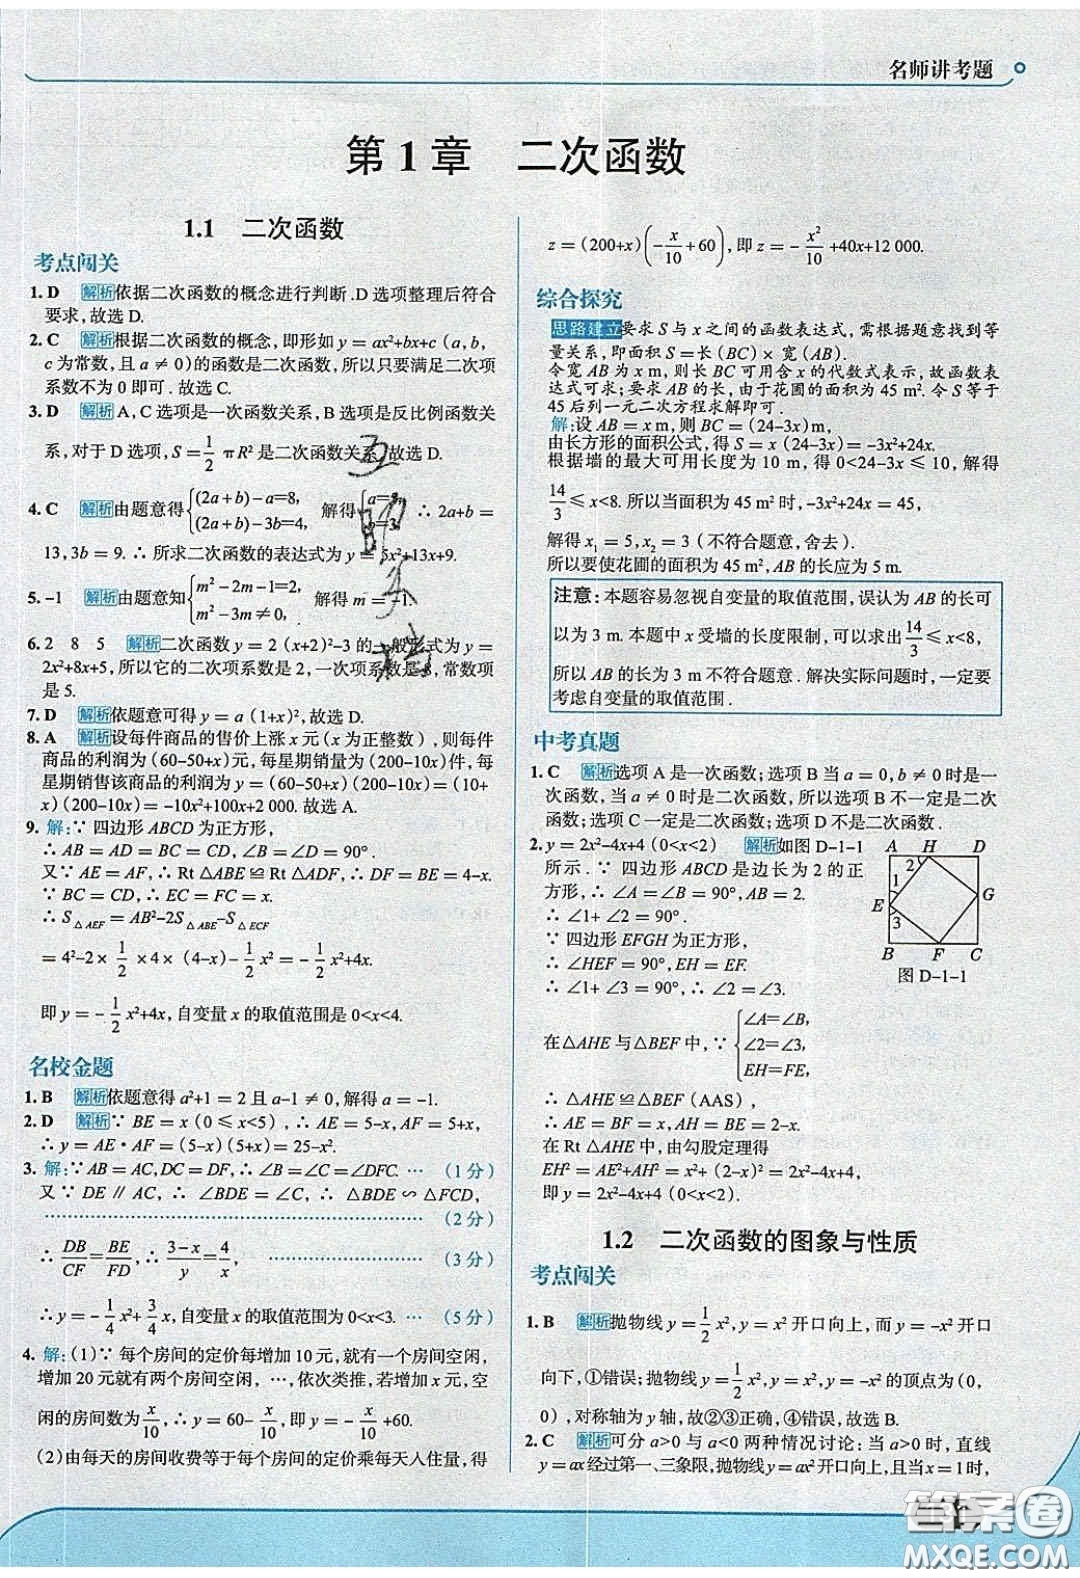 名师讲考题
第1章 二次函数
1.1 二次函数
考点闯关
1. D 解析 依据二次函数的概念进行判断.D选项整理后符合
要求,故选D.
2. C 解析 根据二次函数的概念,即形如 y=ax²+bx+c(a,b,
c为常数,且a≠0)的函数是二次函数,所以只要满足二次项
系数不为0即可.故选C.
3. D 解析 A,C选项是一次函数关系,B选项是反比例函数关
系,对于D选项,S=1/2 πR²是二次函数关系.故选D.
4. C 解析 由题意得{(2a+b)-a=8, (2a+b)-3b=4, 解得{a=8, b=3, ∴2a+b=
13,3b=9.∴所求二次函数的表达式为y=5x²+13x+9.
5. -1 解析 由题意知{m²-2m-1=2, m²-3m≠0, 解得m=-1.
6. 2 8 5 解析 二次函数y=2(x+2)²-3的一般形式为y=
2x²+8x+5,所以它的二次项系数是2,一次项系数是8,常数项
是5.
7. D 解析 依题意可得y=a(1+x)²,故选D.
8. A 解析 设每件商品的售价上涨x元(x为正整数),则每件
商品的利润为(60-50+x)元,每星期销量为(200-10x)件,每
星期销售该商品的利润为y=(60-50+x)(200-10x)=(10+
x)(200-10x)=-10x²+100x+2 000.故选A.
9. 解:∵四边形ABCD为正方形,
∴AB=AD=BC=CD,∠B=∠D=90°.
又∵AE=AF,∴Rt△ABE≌Rt△ADF,∴DF=BE=4-x.
∵BC=CD,∴EC=FC=x.
∴S△AEF=AB²-2S△ABE-S△ECF
=4²-2×1/2×4×(4-x)-1/2x²=-1/2x²+4x.
即y=-1/2x²+4x,自变量x的取值范围是0<x<4.
名校金题
1. B 解析 依题意得a²+1=2且a-1≠0,解得a=-1.
2. D 解析 ∵BE=x(0≤x<5),∴AE=5-x,AF=5+x,
∴y=AE·AF=(5-x)(5+x)=25-x².
3. 解:∵AB=AC,DC=DF,∴∠B=∠C=∠DFC. … (1分)
又∵DE∥AC,∴∠BDE=∠C,∴△BDE∽△FCD,
…………………………………… (2分)
∴DB/CF=BE/FD,∴(3-x)/y=4/x, …………… (3分)
∴y=-1/4x²+3/4x,自变量x的取值范围为0<x<3. … (5分)
4. 解:(1)∵每个房间的定价每增加10元,就有一个房间空闲,
增加20元就有两个房间空闲,…,依次类推,若增加x元,空
闲的房间数为x/10,∴y=60-x/10,即y=-x/10+60.
(2)由每天的房间收费等于每个房间的定价乘每天入住量,得
z=(200+x)(-x/10+60),即z=-x²/10+40x+12 000.
综合探究
思路建立 要求S与x之间的函数表达式,需根据题意找到等
量关系,即面积S=长(BC)×宽(AB).
令宽AB为x m,则长BC可用含x的代数式表示,故函数表
达式可求;要求AB的长,由于花圃的面积为45 m²,令S等于
45后列一元二次方程求解即可.
解:设AB=x m,则BC=(24-3x)m,
由长方形的面积公式,得S=x(24-3x)=-3x²+24x.
根据墙的最大可用长度为10 m,得0<24-3x≤10,解得
14/3≤x<8.所以当面积为45 m²时,-3x²+24x=45,
解得x₁=5,x₂=3(不符合题意,舍去).
所以要使花圃的面积为45 m²,AB的长应为5 m.
注意:本题容易忽视自变量的取值范围,误认为AB的长可
以为3 m.本题中x受墙的长度限制,可以求出14/3≤x<8,
所以AB的长为3 m不符合题意.解决实际问题时,一定要
考虑自变量的取值范围.
中考真题
1. C 解析 选项A是一次函数;选项B当a=0,b≠0时是一
次函数,当a≠0时是二次函数,所以选项B不一定是二次
函数;选项C一定是二次函数;选项D不是二次函数.
2. y=2x²-4x+4(0<x<2) 解析 如图D-1-1
所示.∵四边形ABCD是边长为2的正
方形,∴∠A=∠B=90°,AB=2.
∴∠1+∠2=90°.
∵四边形EFGH为正方形,
∴∠HEF=90°,EH=EF.
∴∠1+∠3=90°,∴∠2=∠3.
A H D
2
1
E G
3
B F C
图D-1-1
在△AHE与△BEF中,∵{∠A=∠B, ∠2=∠3, EH=FE,
∴△AHE≌△BEF(AAS),
∴AE=BF=x,AH=BE=2-x.
在Rt△AHE中,由勾股定理得
EH²=AE²+AH²=x²+(2-x)²=2x²-4x+4,
即y=2x²-4x+4(0<x<2).
1.2 二次函数的图象与性质
考点闯关
1. B 解析 抛物线y=1/2x²,y=x²开口向上,而y=-x²开口
向下,①错误;抛物线y=1/2x²,y=x²,y=-x²的顶点为(0,
0),对称轴为y轴,故②③正确,④错误,故选B.
2. C 解析 可分a>0与a<0两种情况讨论:当a>0时,直线
y=ax经过第一、三象限,抛物线y=ax²开口向上,当x=1时,
答案卷
MXQE.COM